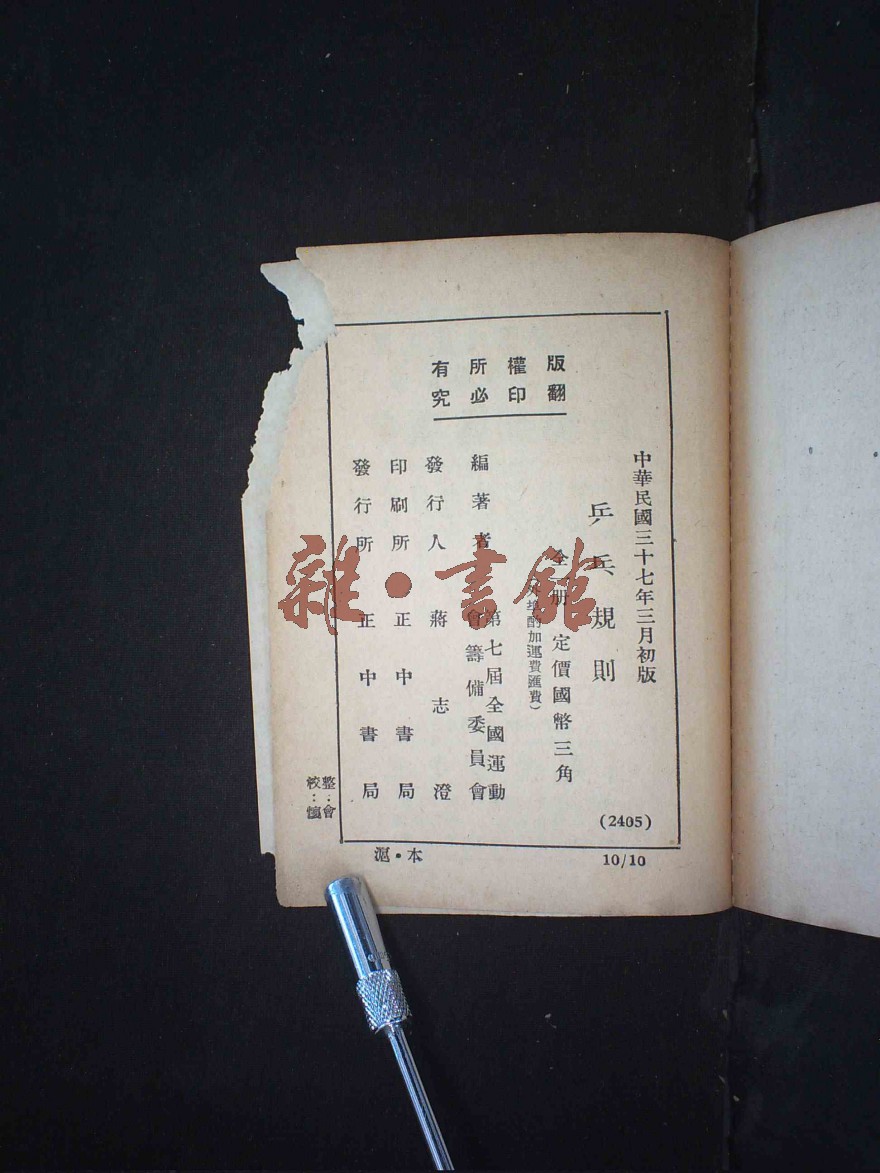 版權所有
翻印必究
中華民國三十七年三月初版
乒乓規則
全一冊 定價國幣三角
埠酌加運費匯費)
編著者 第七屆全國運動
會籌備委員會
發行人 蔣志澄
印刷所 正中書局
發行所 正中書局
(2405)
整:會
校:
滬·本
10/10
雜·書館